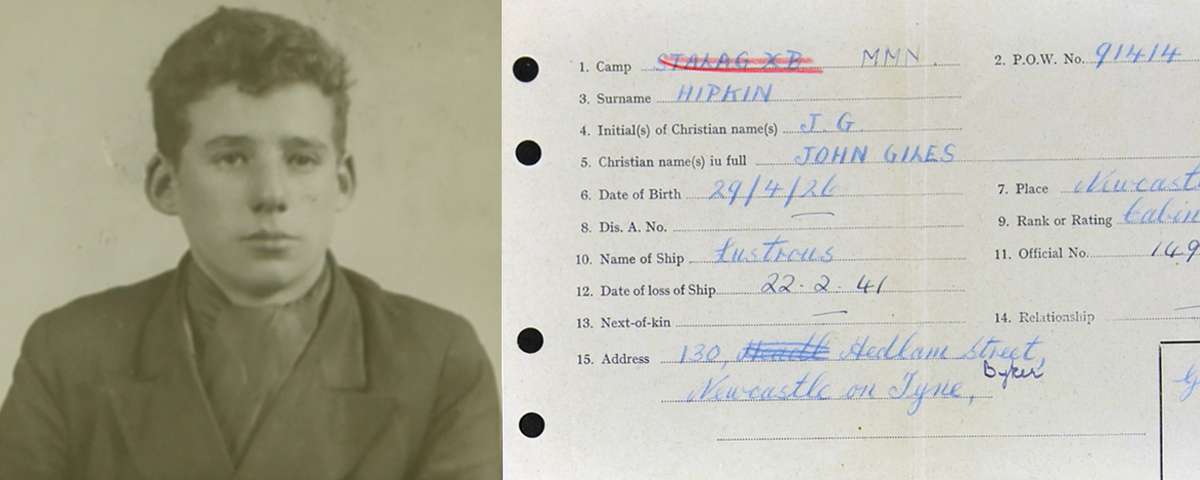 1. Camp STALAG XB MMN.
2. P.O.W. No. 91414
3. Surname HIPKIN
4. Initial(s) of Christian name(s) J. G.
5. Christian name(s) iu full JOHN GILES
6. Date of Birth 29/4/26
7. Place Newcast
8. Dis. A. No.
9. Rank or Rating Cabin
10. Name of Ship Lustrous
11. Official No. 149
12. Date of loss of Ship 22·2·41
13. Next-of-kin
14. Relationship
15. Address 130, Hedlam Street,
Byker
Newcastle on Tyne,
G